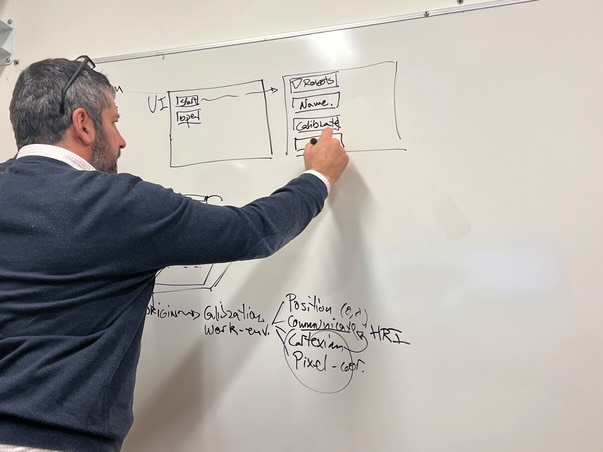 UI
Start
open
Robots
Name.
Calibrate
ORIGIN → Calibration
work-env.
Position
Communicate
HRI
Cartexian
Pixel-coor.